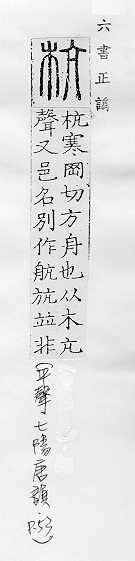 六書正譌
杭
杭寒岡切方舟也从木亢
聲又邑名別作航斻並非
(平聲七陽唐韻 P.53)